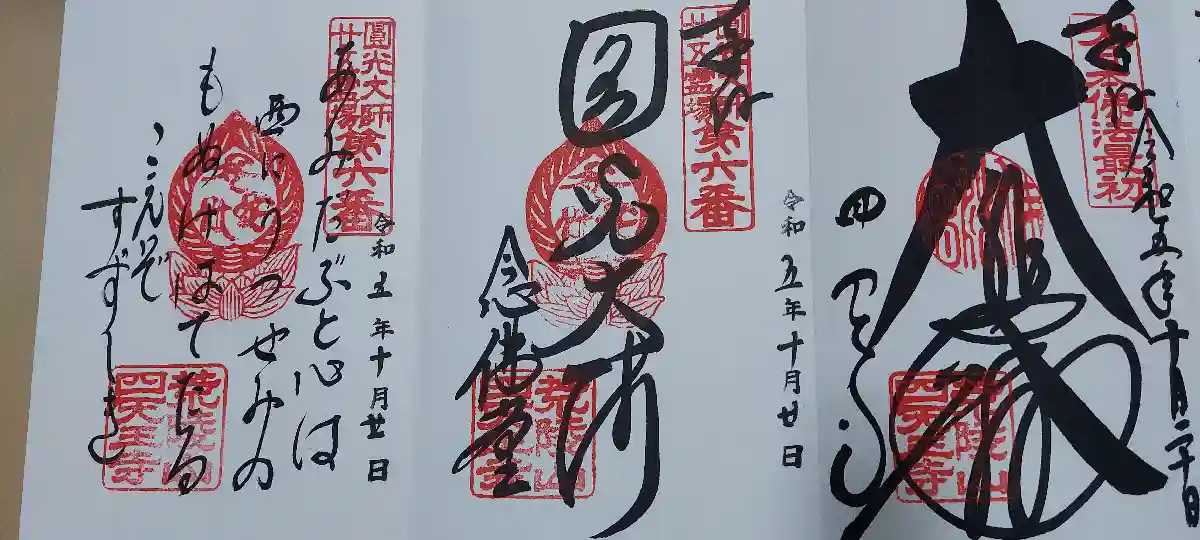 奉拝
日本佛法最初
令和五年十月二十日
大
四天王寺
荒陵山
四天王寺
令和五年十月廿日
奉拝
圓光大師
廿五霊場第六番
圓光大師
念佛堂
荒陵山
四天王寺
令和五年十月廿日
圓光大師
廿五霊場第六番
あみだぶと心は
西にうつせみの
もぬけはてたる
こゑぞ
すずしき
荒陵山
四天王寺